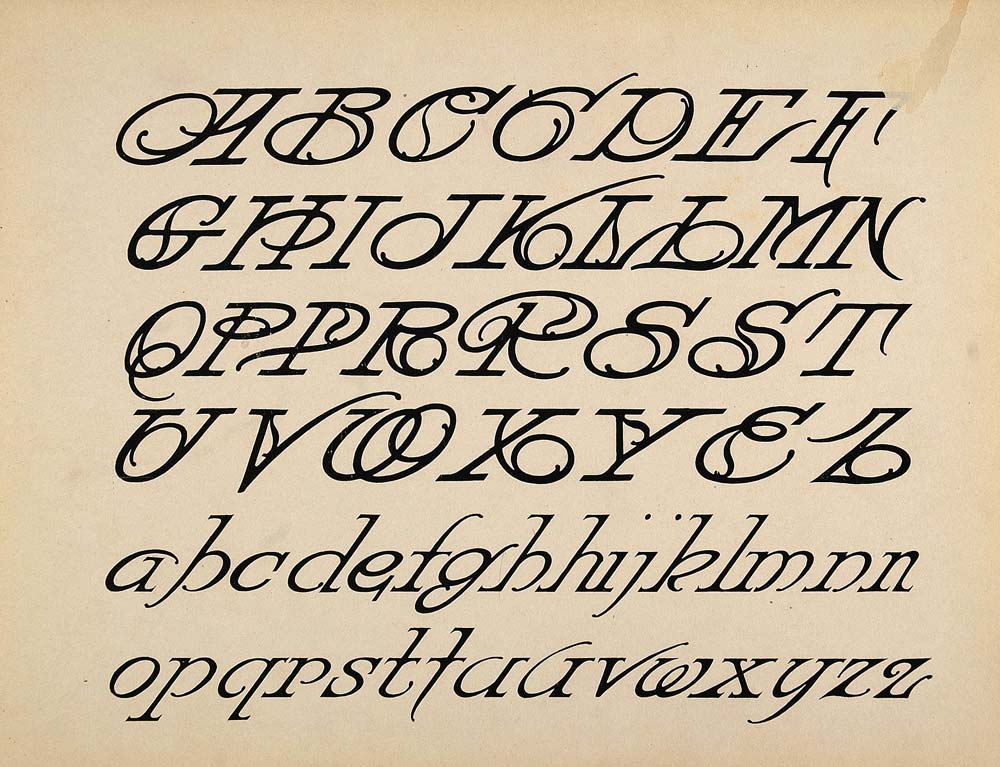 ABCCDEF
GHIJKLLMN
QPPRRSST
UVWXYEZ
abcdefghhijklmnn
opqrsttuuvwxyzz